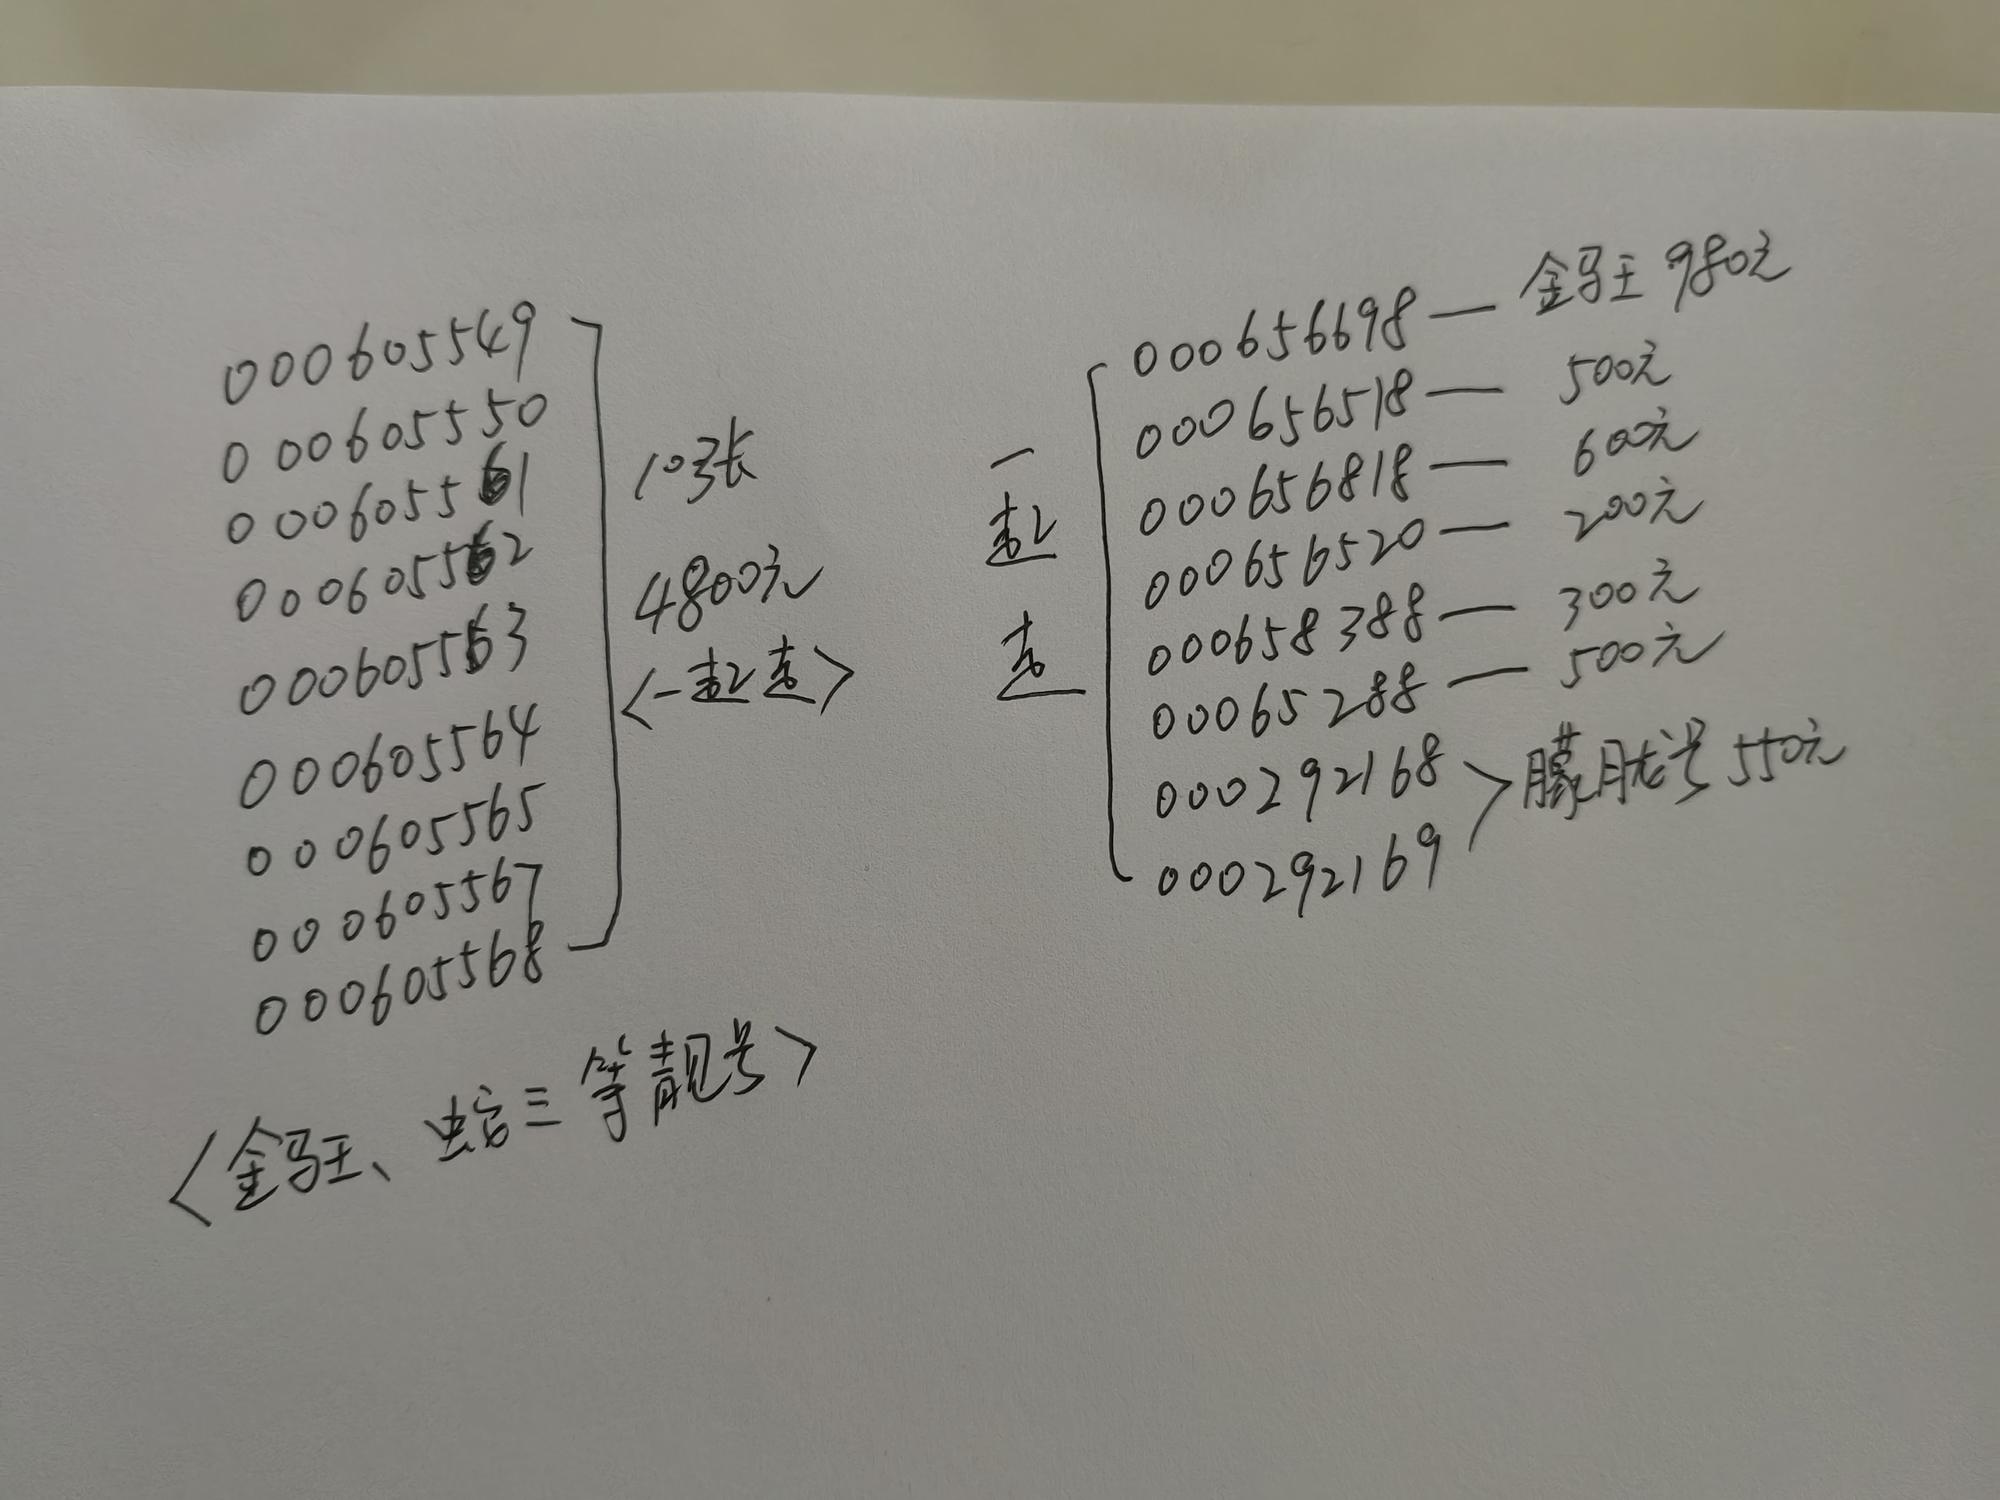 000605549
000605550
000605561
000605562
000605563
000605564
000605565
000605567
000605568
10张
4800元
<一起走>
<金马王、蛤三等靓号>
一起走
000656698 — 金马王 980元
000656518 — 500元
000656818 — 600元
000656520 — 200元
000658388 — 300元
00065288 — 500元
000292168
000292169
> 朦胧号 550元